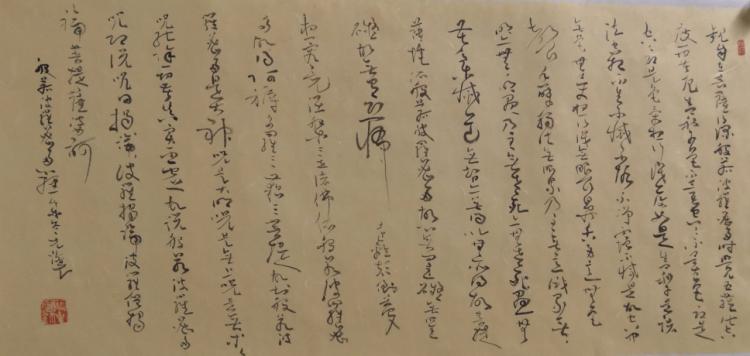 觀自在菩薩行深般若波羅蜜多時照見五蘊皆空
度一切苦厄舍利子色不異空空不異色色即是
空空即是色受想行識亦復如是舍利子是諸
法空相不生不滅不垢不淨不增不減是故空中
無色無受想行識無眼耳鼻舌身意無色
聲香味觸法無眼界乃至無意識界無無
明亦無無明盡乃至無老死亦無老死盡無
苦集滅道無智亦無得以無所得故菩提
薩埵依般若波羅蜜多故心無罣礙無罣
礙故無有恐怖遠離顛倒夢
想究竟涅槃三世諸佛依般若波羅蜜
多故得阿耨多羅三藐三菩提故知般若波
羅蜜多是大神咒是大明咒是無上咒是無等等
咒能除一切苦真實不虛故說般若波羅蜜多
咒即說咒曰揭諦揭諦波羅揭諦波羅僧揭
諦菩提薩婆訶
般若波羅蜜多